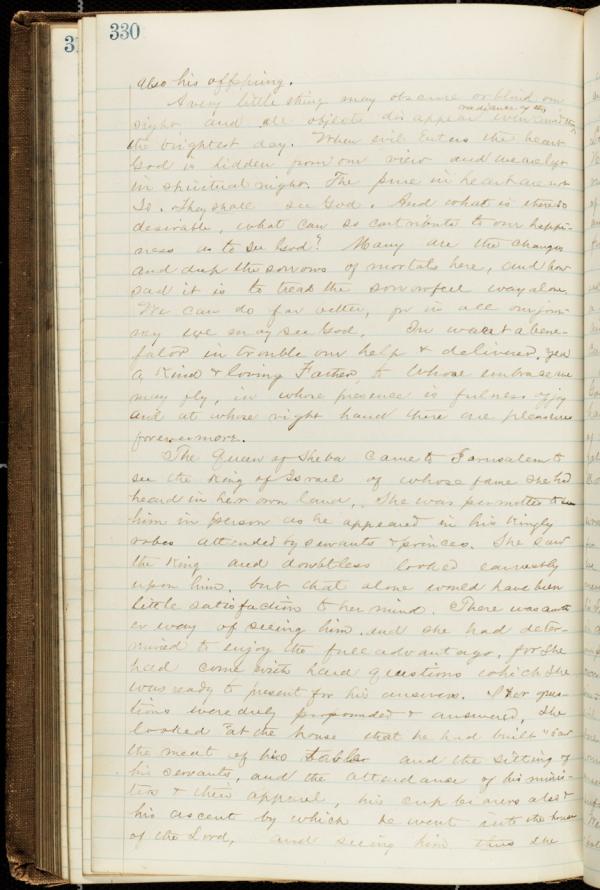 330
also his offspring.
A very little thing may obscure or blind our
radiance of the
sight, and all objects disappear even amid the
the brightest day. When evil enters the heart
God is hidden from our view and we are left
in spiritual night. The pure in heart are not
so. They shall see God. And what is there so
desirable, what can so contribute to our happi-
ness as to see God? Many are the changes
and deep the sorrows of mortals here, and how
sad it is to tread the sorrowful way alone.
We can do far better, for in all our jour-
ney we may see God. Our want a bene-
factor in trouble our help & deliverer, yea
a kind & loving Father, to whose embrace we
may fly, in whose presence is fulness of joy
and at whose right hand there are pleasures
forevermore.
The Queen of Sheba came to Jerusalem to
see the King of Israel of whose fame she had
heard in her own land. She was permitted to see
him in person as he appeared in his kingly
robes attended by servants & princes. She saw
the King and doubtless looked earnestly
upon him, but that alone would have been
little satisfaction to her mind. There was anoth-
er way of seeing him and she had deter-
mined to enjoy the full advantage, for she
had come with hard questions which she
was ready to present for his answers. Her ques-
tions were duly propounded & answered, she
looked at the house that he had built "and
the meat of his table and the sitting of
his servants, and the attendance of his minis-
ters & their apparel, his cup bearers also &
his ascent by which he went into the house
of the Lord, and seeing him thus she